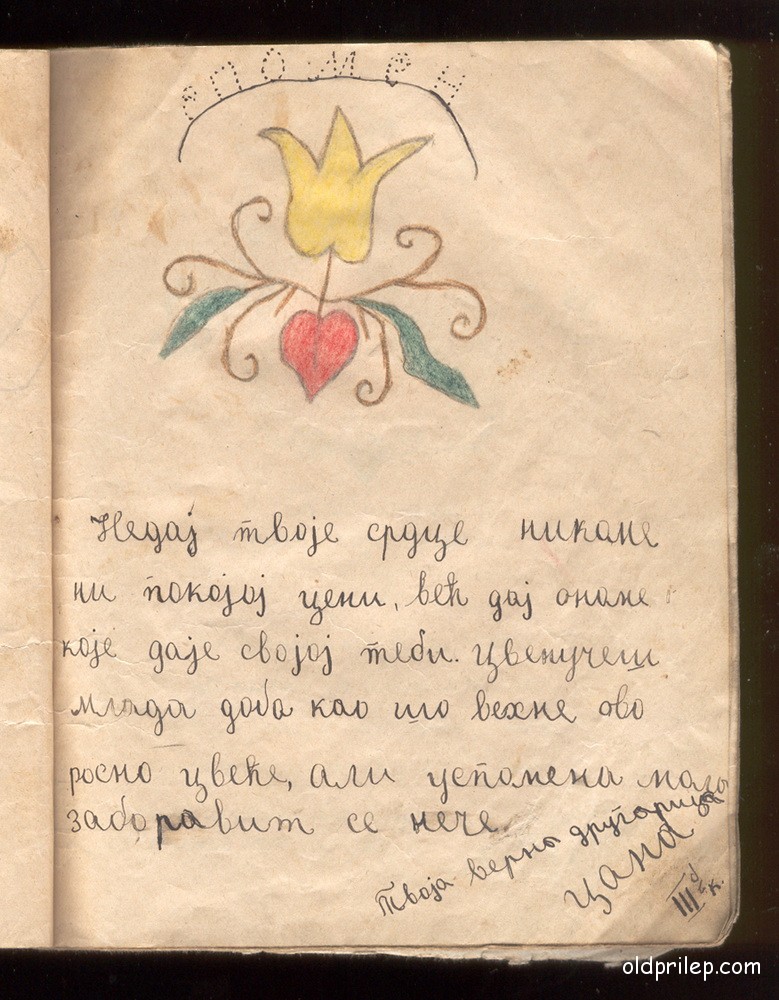 СПОМЕН
Недај твоје срдце никоме
ни покојој цени, већ дај ономе
које даје својој теби. Цветучеш
млада доба као шо вехне ово
росно цвеће, али успомена мала
заборавит се нече.
Твоја верна другарица
Цана
III д к.
oldprilep.com